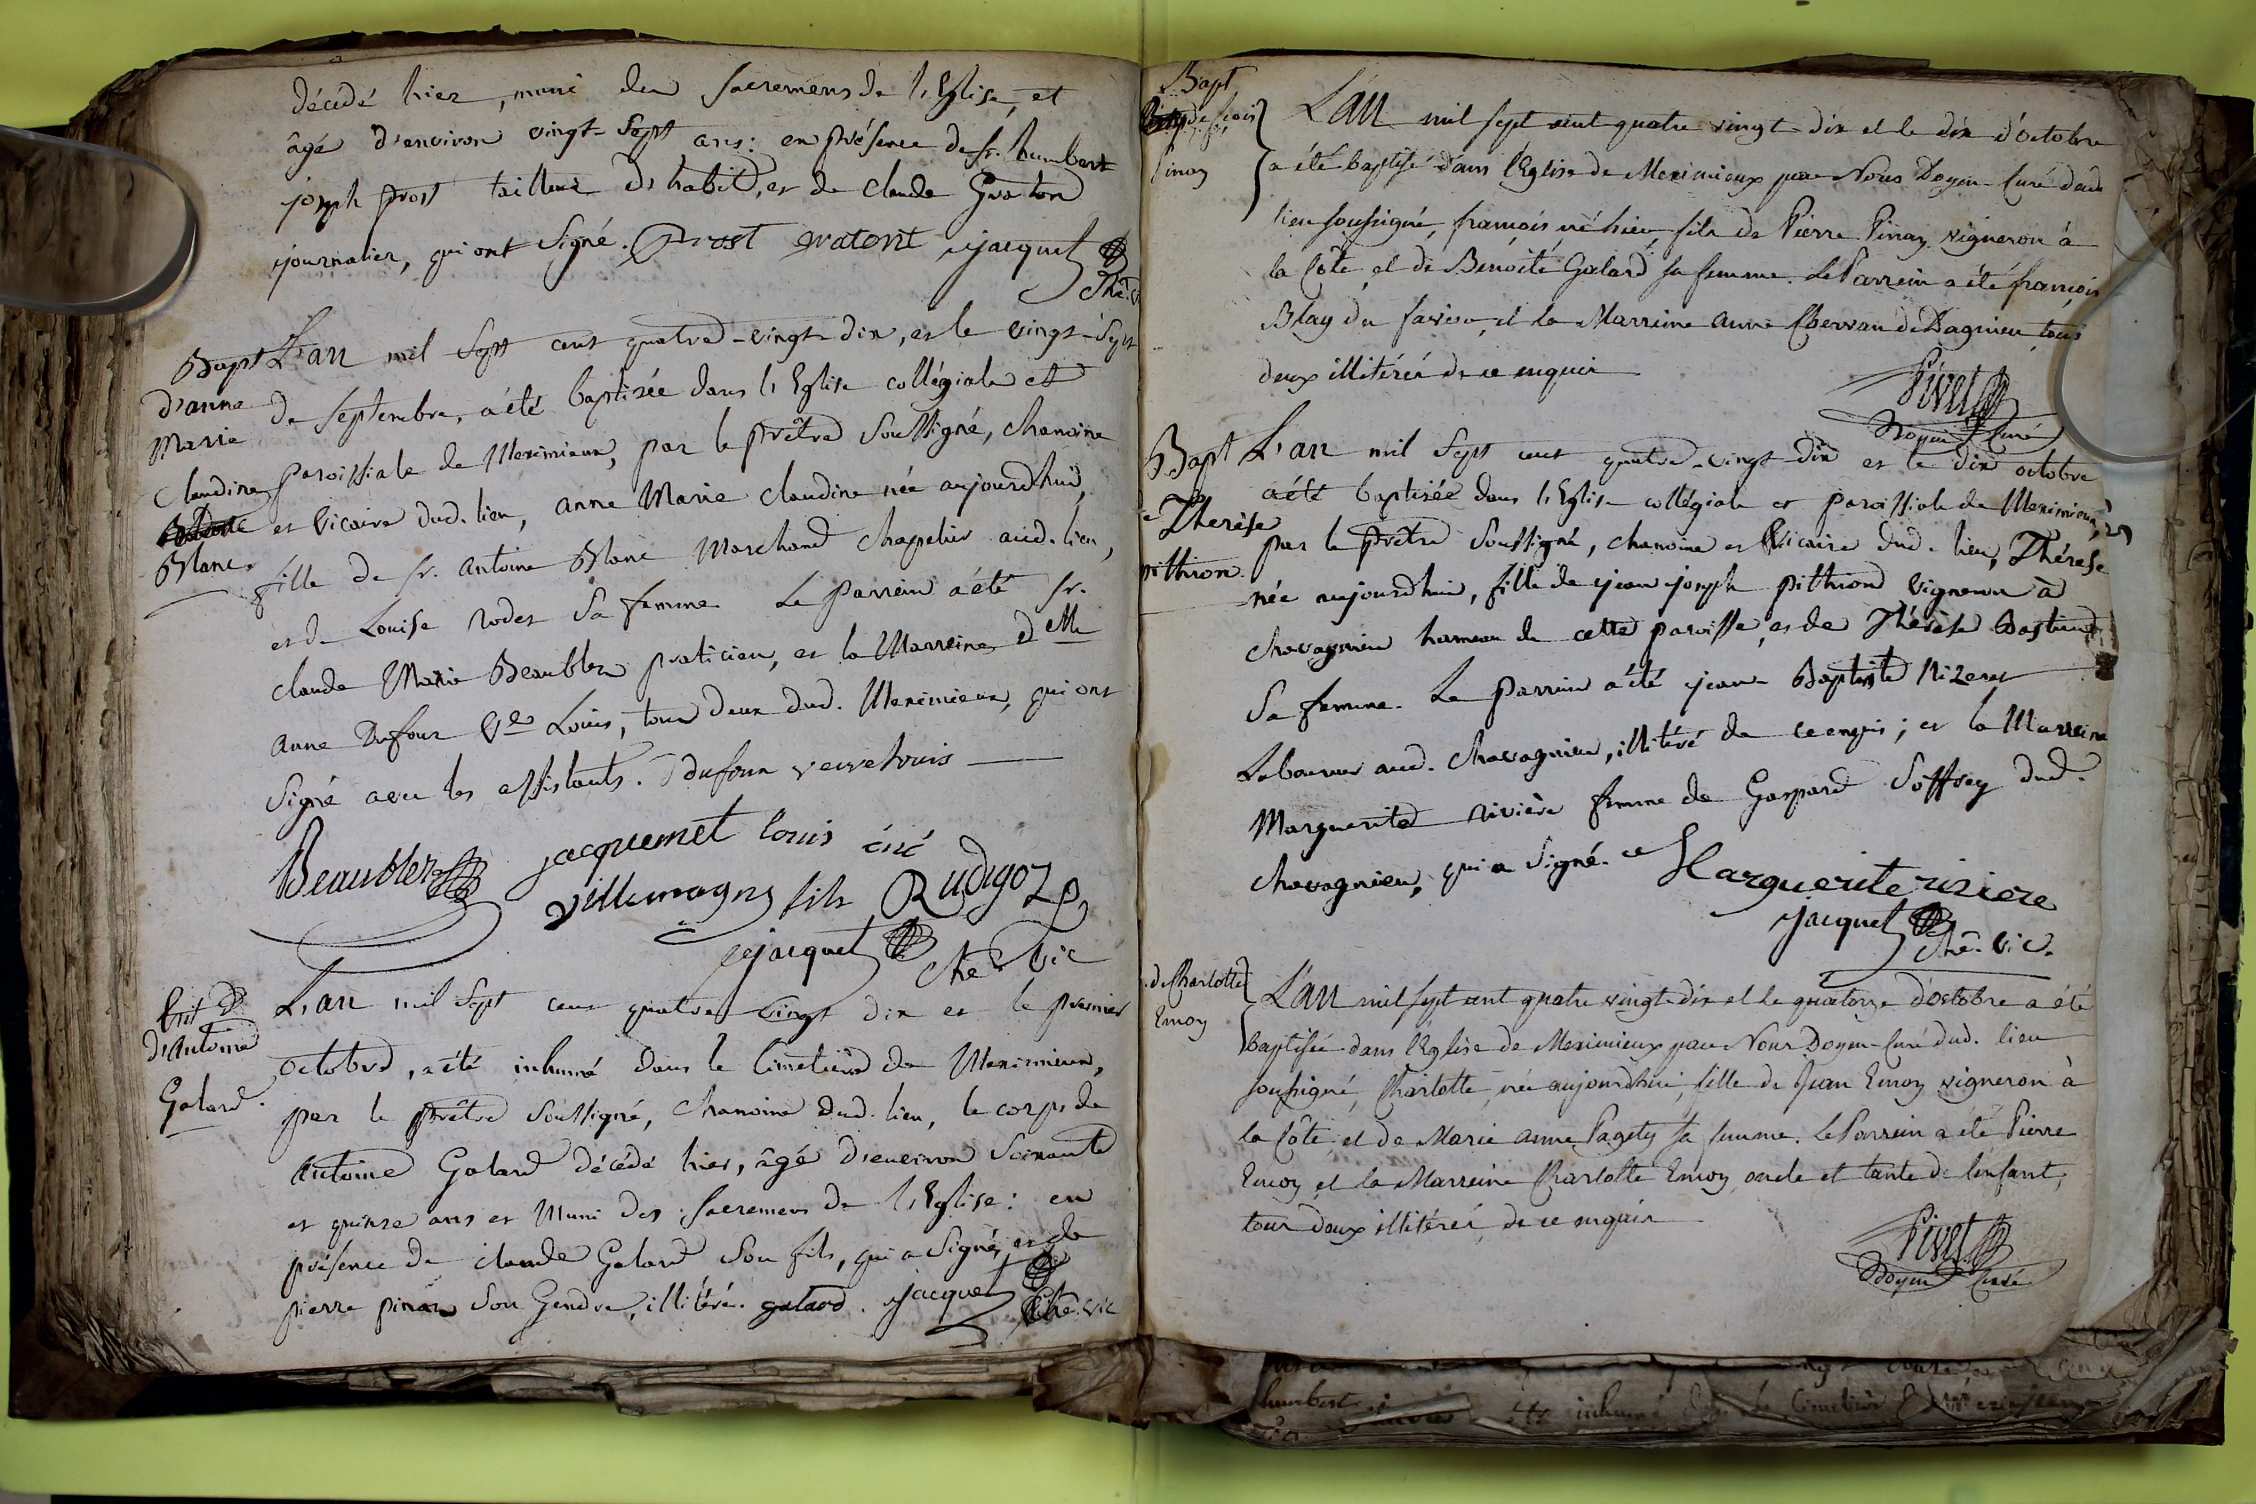 décédé hier, muni des sacremens de l'Eglise, et
âgé d'environ vingt-sept ans: en présence de sr. humbert
joseph prost tailleur d'habit, et de claude Graton
journalier, qui ont signé. Prost Gratont jacquet
Che. v
Bapt
d'anne
Marie
Claudine
Blanc.
L'an mil sept cent quatre-vingt-dix, et le vingt-sept
de septembre, a été baptisée dans l'Eglise collégiale et
paroissiale de Meximieux, par le prêtre soussigné, chanoine
et vicaire dud. lieu, anne Marie claudine née aujourd'hui,
fille de sr. antoine Blanc Marchand chapelier aud. lieu,
et de Louise rodet sa femme. Le parrein a été sr.
claude Marie Beaublez praticien, et la Marreine delle
anne Dufour ve Louis, tous deux dud. Meximieux, qui ont
signé avec les assistants. Dufour veuve louis
Beaublez jacquemet louis
villemagne fils Rudigoz
jacquet
che. vic
d'Antoine
Galard.
L'an mil sept cent quatre vingt dix et le premier
octobre, a été inhumé dans le cimetière de Meximieux,
par le prêtre soussigné, chanoine dud. lieu, le corps de
Antoine Galard décédé hier, âgé d'environ soixante
et quinze ans et muni des sacremens de l'Eglise: en
présence de claude Galard son fils, qui a signé, et de
pierre pinay son Gendre, illitéré. galard. jacquet
che. vic
Bapt
de frois
Pinay
L'an mil sept cent quatre vingt-dix et le dix d'octobre
a été baptisé dans l'Eglise de Meximieux par Nous Doyen-Curé dud.
lieu soussigné, françois né hier, fils de Pierre Pinay vigneron à
la Côte, et de Benoite Galard sa femme. Le Parrein a été françois
Blay du et la Marreine anne Chervan de Dagnieu tous
deux illitérés de ce enquis
Pivet
Doyen Curé
Bapt
de Thérèse
pithion.
L'an mil sept cent quatre-vingt-dix et le dix octobre
a été baptisée dans l'Eglise collégiale et paroissiale de Meximieux,
par le prêtre soussigné, chanoine et vicaire dud. lieu, Thérèse
née aujourd'hui, fille de jean joseph pithiond vigneron à
chavagnieu hameau de cette paroisse, et de Thérèse
sa femme. Le parrein a été jean Baptiste Nizeret
Laboureur aud. chavagnieu, illitéré de ce enquis; et la Marreine
Marguerite rivière femme de Gaspard Soffrey dud.
chavagnieu, qui a signé. Marguerite riviere
jacquet
che. vic.
de Charlotte
Emoy
L'an mil sept cent quatre vingt-dix et le quatorze d'octobre a été
baptisée dans l'Eglise de Meximieux par Nous Doyen-Curé dud. lieu
soussigné, Charlotte, née aujourd'hui, fille de Jean Emoy vigneron à
la Côte, et de Marie anne Pagety sa femme. Le Parrein a été Pierre
Emoy et la Marreine Charlotte Emoy oncle et tante de l'enfant,
tous deux illitérés, de ce enquis
Pivet
Doyen Curé
humbert
inhumé